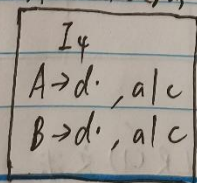 I4
A→d· , a|c
B→d· , a|c